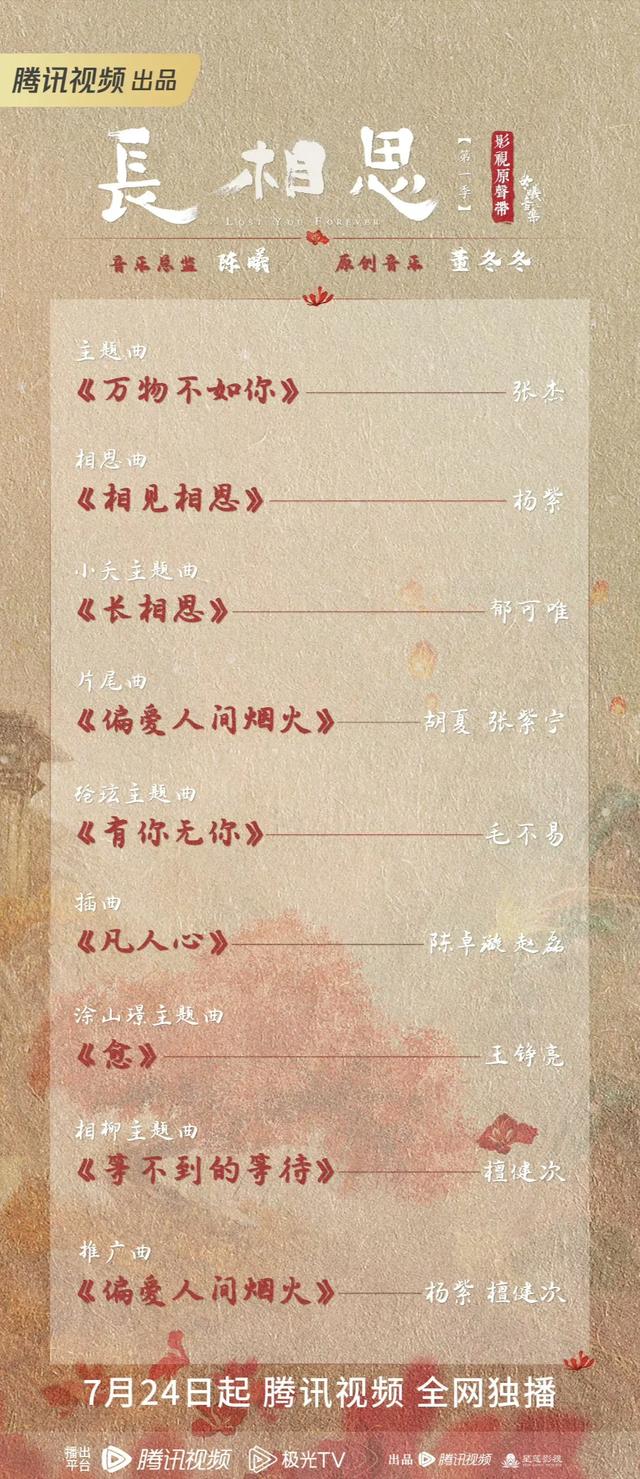 腾讯视频 出品
長相思
【第一季】
影視原聲帶
LOST YOU FOREVER
音乐总监 陈曦 原创音乐 董冬冬
主题曲
《万物不如你》 张杰
相思曲
《相见相思》 杨紫
小夭主题曲
《长相思》 郁可唯
片尾曲
《偏爱人间烟火》 胡夏 张紫宁
玱玹主题曲
《有你无你》 毛不易
插曲
《凡人心》 陈卓璇 赵磊
涂山璟主题曲
《愈》 王铮亮
相柳主题曲
《等不到的等待》 檀健次
推广曲
《偏爱人间烟火》 杨紫 檀健次
7月24日起 腾讯视频 全网独播
播出平台 腾讯视频 极光TV 出品 腾讯视频 星莲影视